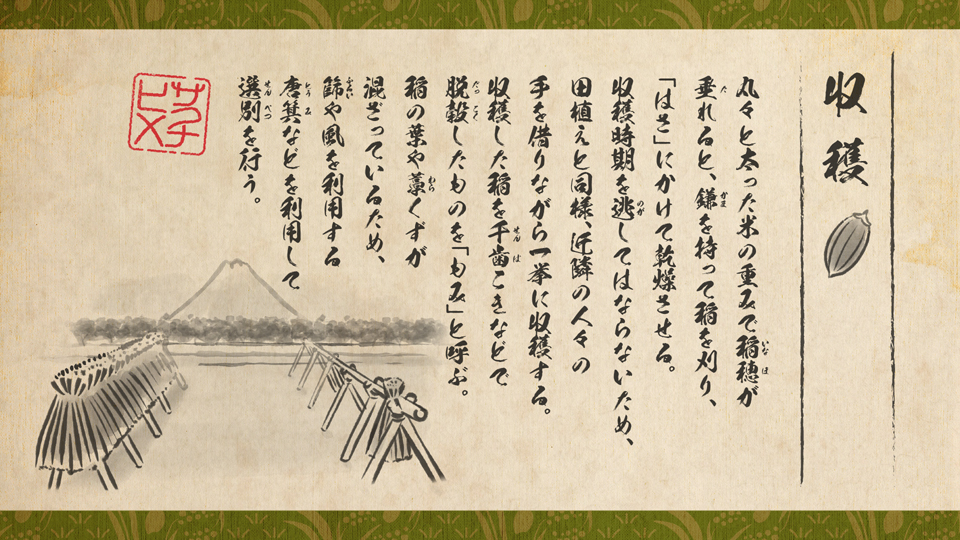 収穫
丸々と太った米の重みで稲穂が
垂れると、鎌を持って稲を刈り、
「はさ」にかけて乾燥させる。
収穫時期を逃してはならないため、
田植えと同様、近隣の人々の
手を借りながら一挙に収穫する。
収穫した稲を千歯こきなどで
脱穀したものを「もみ」と呼ぶ。
稲の葉や藁くずが
混ざっているため、
篩や風を利用する
唐箕などを利用して
選別を行う。
サクナ
ヒメ